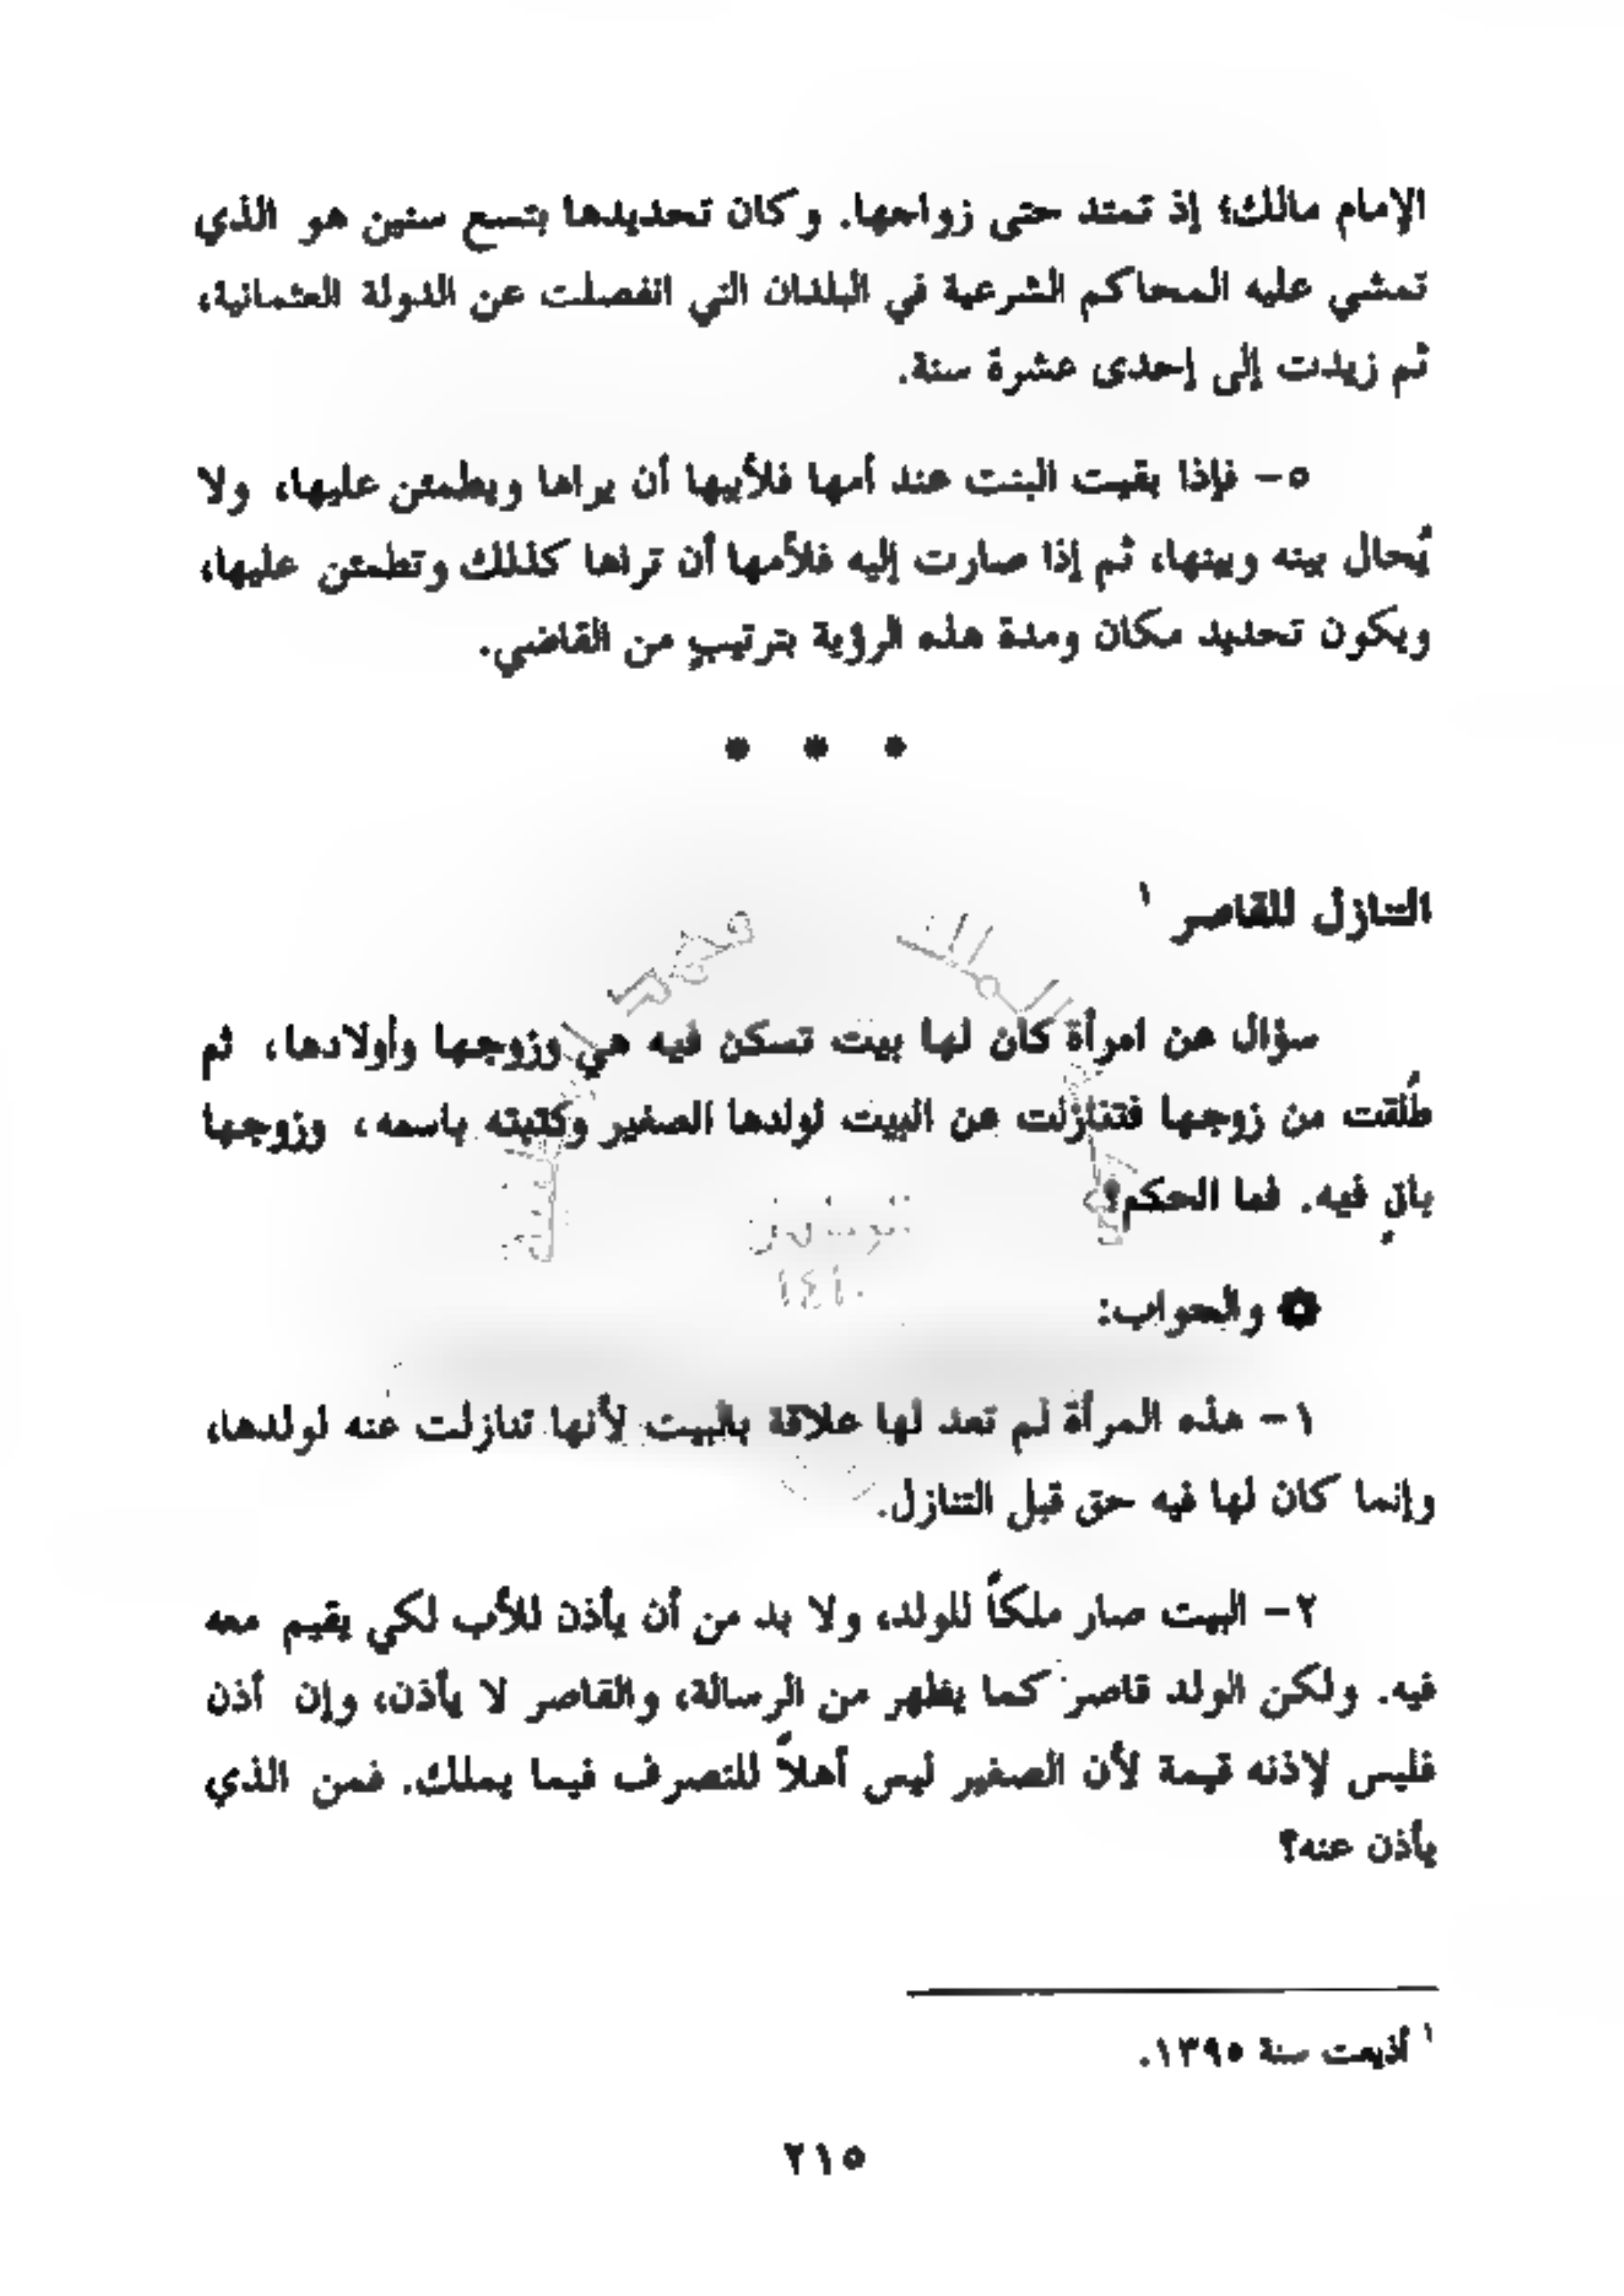 الإمام مالك؛ إذ تمتد حتى زواجها. وكان تحديدها بتسع سنين هو الذي
تمشي عليه المحاكم الشرعية في البلدان التي انفصلت عن الدولة العثمانية،
ثم زيدت إلى إحدى عشرة سنة.
٥- فإذا بقيت البنت عند أمها فلأبيها أن يراها ويطمئن عليها، ولا
يُحال بينه وبينها، ثم إذا صارت إليه فلأمها أن تراها كذلك وتطمئن عليها،
ويكون تحديد مكان ومدة هذه الرؤية بترتيبٍ من القاضي.
* * *
التنازل للقاصر ١
سؤال عن امرأة كان لها بيت تسكن فيه هي وزوجها وأولادها، ثم
طُلقت من زوجها فتنازلت عن البيت لولدها الصغير وكتبته باسمه، وزوجها
باقٍ فيه. فما الحكم؟
۞ والجواب:
١- هذه المرأة لم تعد لها علاقة بالبيت لأنها تنازلت عنه لولدها،
وإنما كان لها فيه حق قبل التنازل.
٢- البيت صار ملكاً للولد، ولا بد من أن يأذن للأب لكي يقيم معه
فيه. ولكن الولد قاصر كما يظهر من الرسالة، والقاصر لا يأذن، وإن أذن
فليس لإذنه قيمة لأن الصغير ليس أهلاً للتصرف فيما يملك. فمن الذي
يأذن عنه؟
١ أذيعت سنة ١٣٩٥.
٢١٥